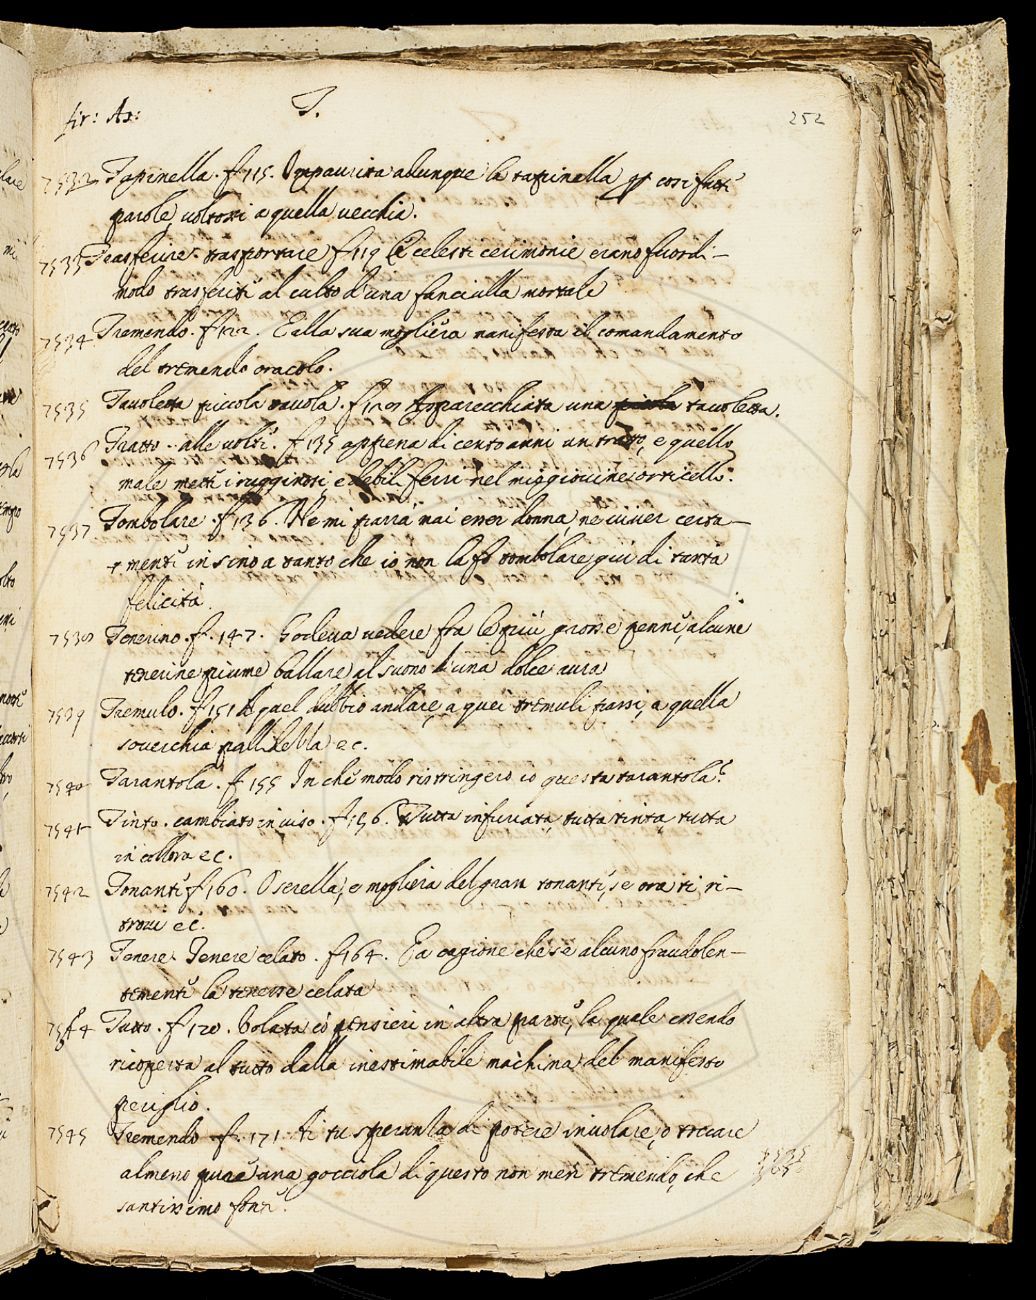 fir: As: T. 252
7532 Tapinella. f 115. Impaurita adunque la tapinella per cosi fatte
parole voltossi a quella vecchia.
7533 Trasferire. trasportare f 119 le celesti cerimonie erano fuor di-
modo trasferite al culto d'una fanciulla mortale
7534 Tremendo. f 122. E alla sua mogliera manifesta il comandamento
del tremendo oracolo.
7535 Tavoletta piccola tavola. f 129 Apparecchiata una tavoletta.
7536 Tratto. alle volte. f 135 appena di cento anni un tratto, e quello
male mette i rugginosi e debili ferri nel orticello:
7537 Tombolare. f 136. Ne mi parrà mai esser donna, ne viver certa-
mente insino a tanto che io non la fo tombolare giù di tanta
felicità.
7538 Tenerino. f. 147. Godeva vedere fra le più grosse penne, alcune
tenerine piume ballare al suono d'una dolce aura
7539 Tremulo. f 151 quel dubbio andare, a quei tremuli passi, a quella
soverchia pallidezza ec.
7540 Tarantola. f 155 In che modo ristringerò io questa tarantola?
7541 Tinto. cambiato in viso. f 156. Tutta infuriata, tutta tinta, tutta
in collora ec.
7542 Tonante f 160. O sorella, e mogliera del gran tonante, se ora ti ri-
trovi ec.
7543 Tenere. Tenere celato. f 164. E a cagione che se alcuno fraudolen-
temente la tenesse celata
7544 Tutto. f 170. Volata co pensieri in altra parte, la quale essendo
ricoperta al tutto dalla inestimabile machina del manifesto
periglio.
7545 Tremendo f. 171. Ai tu speranza di potere involare, o toccare
almeno pure una gocciola di questo non men tremendo, che
santissimo fonte.